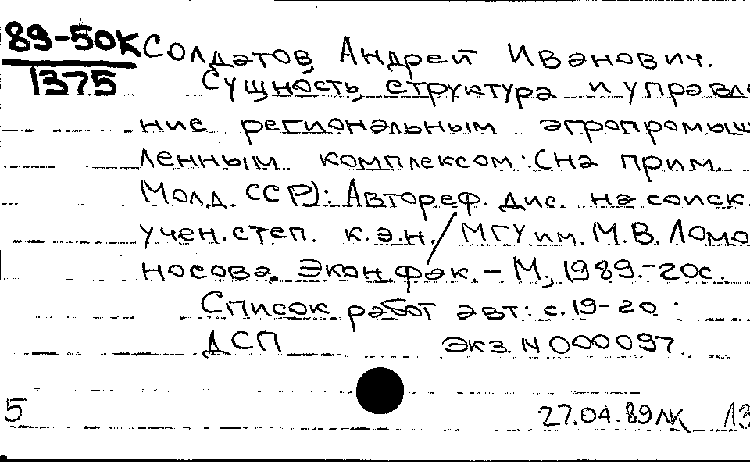 89-50К Солдатов Андрей Иванович.
1375 Сущность, структура и управле
ние региональным агропромыш
ленным комплексом: (на прим.
Молд. ССР): Автореф. дис. на соиск.
учен. степ. к.э.н. / МГУ им. М.В. Ломо
носова. Экон. фак. – М., 1989. – 20с.
Список работ авт: с. 19-20.
ДСП Экз. N 000097.
5 27.04.89